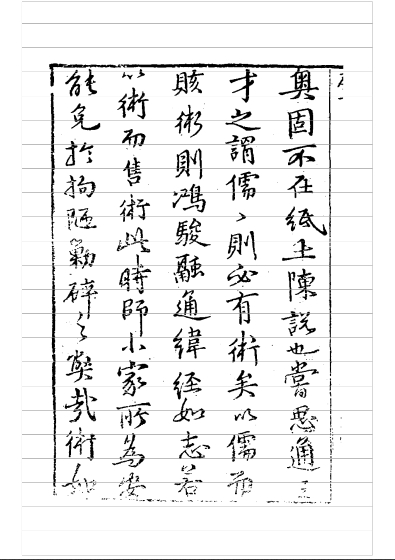 奧固不在紙上陳說也嘗思通三
才之謂儒〻則必有術矣以儒
賅術則鴻駿融通緯經如志若
以術而售術此時師小家所為安
能免於拘陋勦碎之獘哉術如